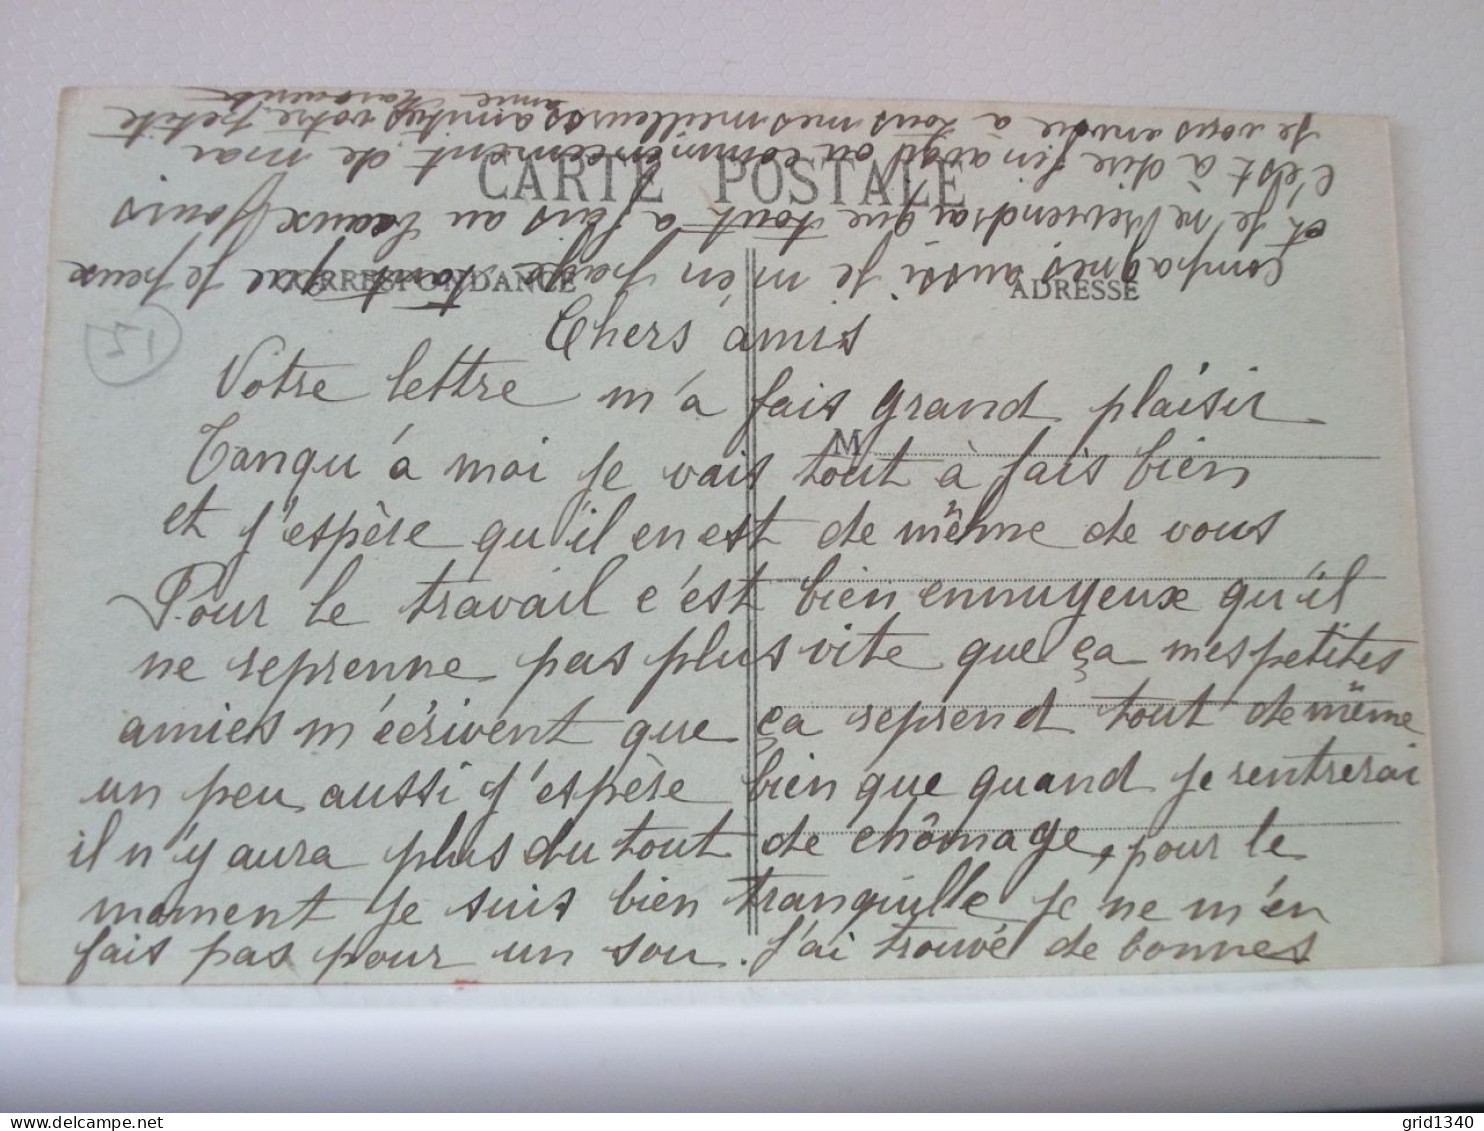 CARTE POSTALE
CORRESPONDANCE
ADRESSE
M
51
Chers amis
Votre lettre m'a fais grand plaisir
Tanqu'à moi je vais tout à fais bien
et j'espère qu'il en est de même de vous
Pour le travail c'est bien ennuyeux qu'il
ne reprenne pas plus vite que ça mes petites
amies m'écrivent que ça reprend tout de même
un peu aussi j'espère bien que quand je rentrerai
il n'y aura plus du tout de chômage, pour le
moment je suis bien tranquille je ne m'en
fais pas pour un sou. J'ai trouvé de bonnes
compagnes aussi je m'en paye tant que je peux
et je ne reviendrai que tout à fais au beaux jours
c'est à dire fin avril au commencement de mai
Je vous envoie à tous mes meilleures amitiés votre petite
amie Marguerite
grid1340